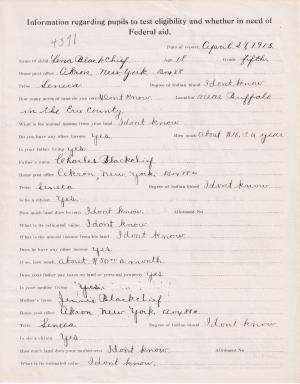 Information regarding pupils to test eligibility and whether in need of
Federal aid.
4371
Date of report, April 28, 1915.
Name of child Lena Blackchief Age 18 Grade fifth.
Home post office Akron, New York Box 88
Tribe Seneca Degree of Indian blood I dont know
How many acres of land do you own? I Dont know. Location near Buffalo
in the Erie County.
What is the annual income from your land. I dont know.
Do you have any other income Yes. How much about $16.00 a year
Is your father living yes.
Father's name Charles Blackchief
Home post office Akron, New York. Box 88
Tribe Seneca Degree of Indian blood I dont know.
Is he a citizen? Yes.
How much land does he own? I dont know. Allotment No.
What is its estimated value. I dont know
What is the annual income from his land I dont know.
Does he have any other income yes
If so, how much. about $50.00 a month
Does your father pay taxes on land or personal property yes
Is your mother living Yes.
Mother's name Jennie Blackchief
Home post office Akron New York. Box 88
Tribe Seneca Degree of Indian blood I dont know
Is she a citizen Yes
How much land does your mother own I dont know. Allotment No.
What is its estimated value. I dont know.